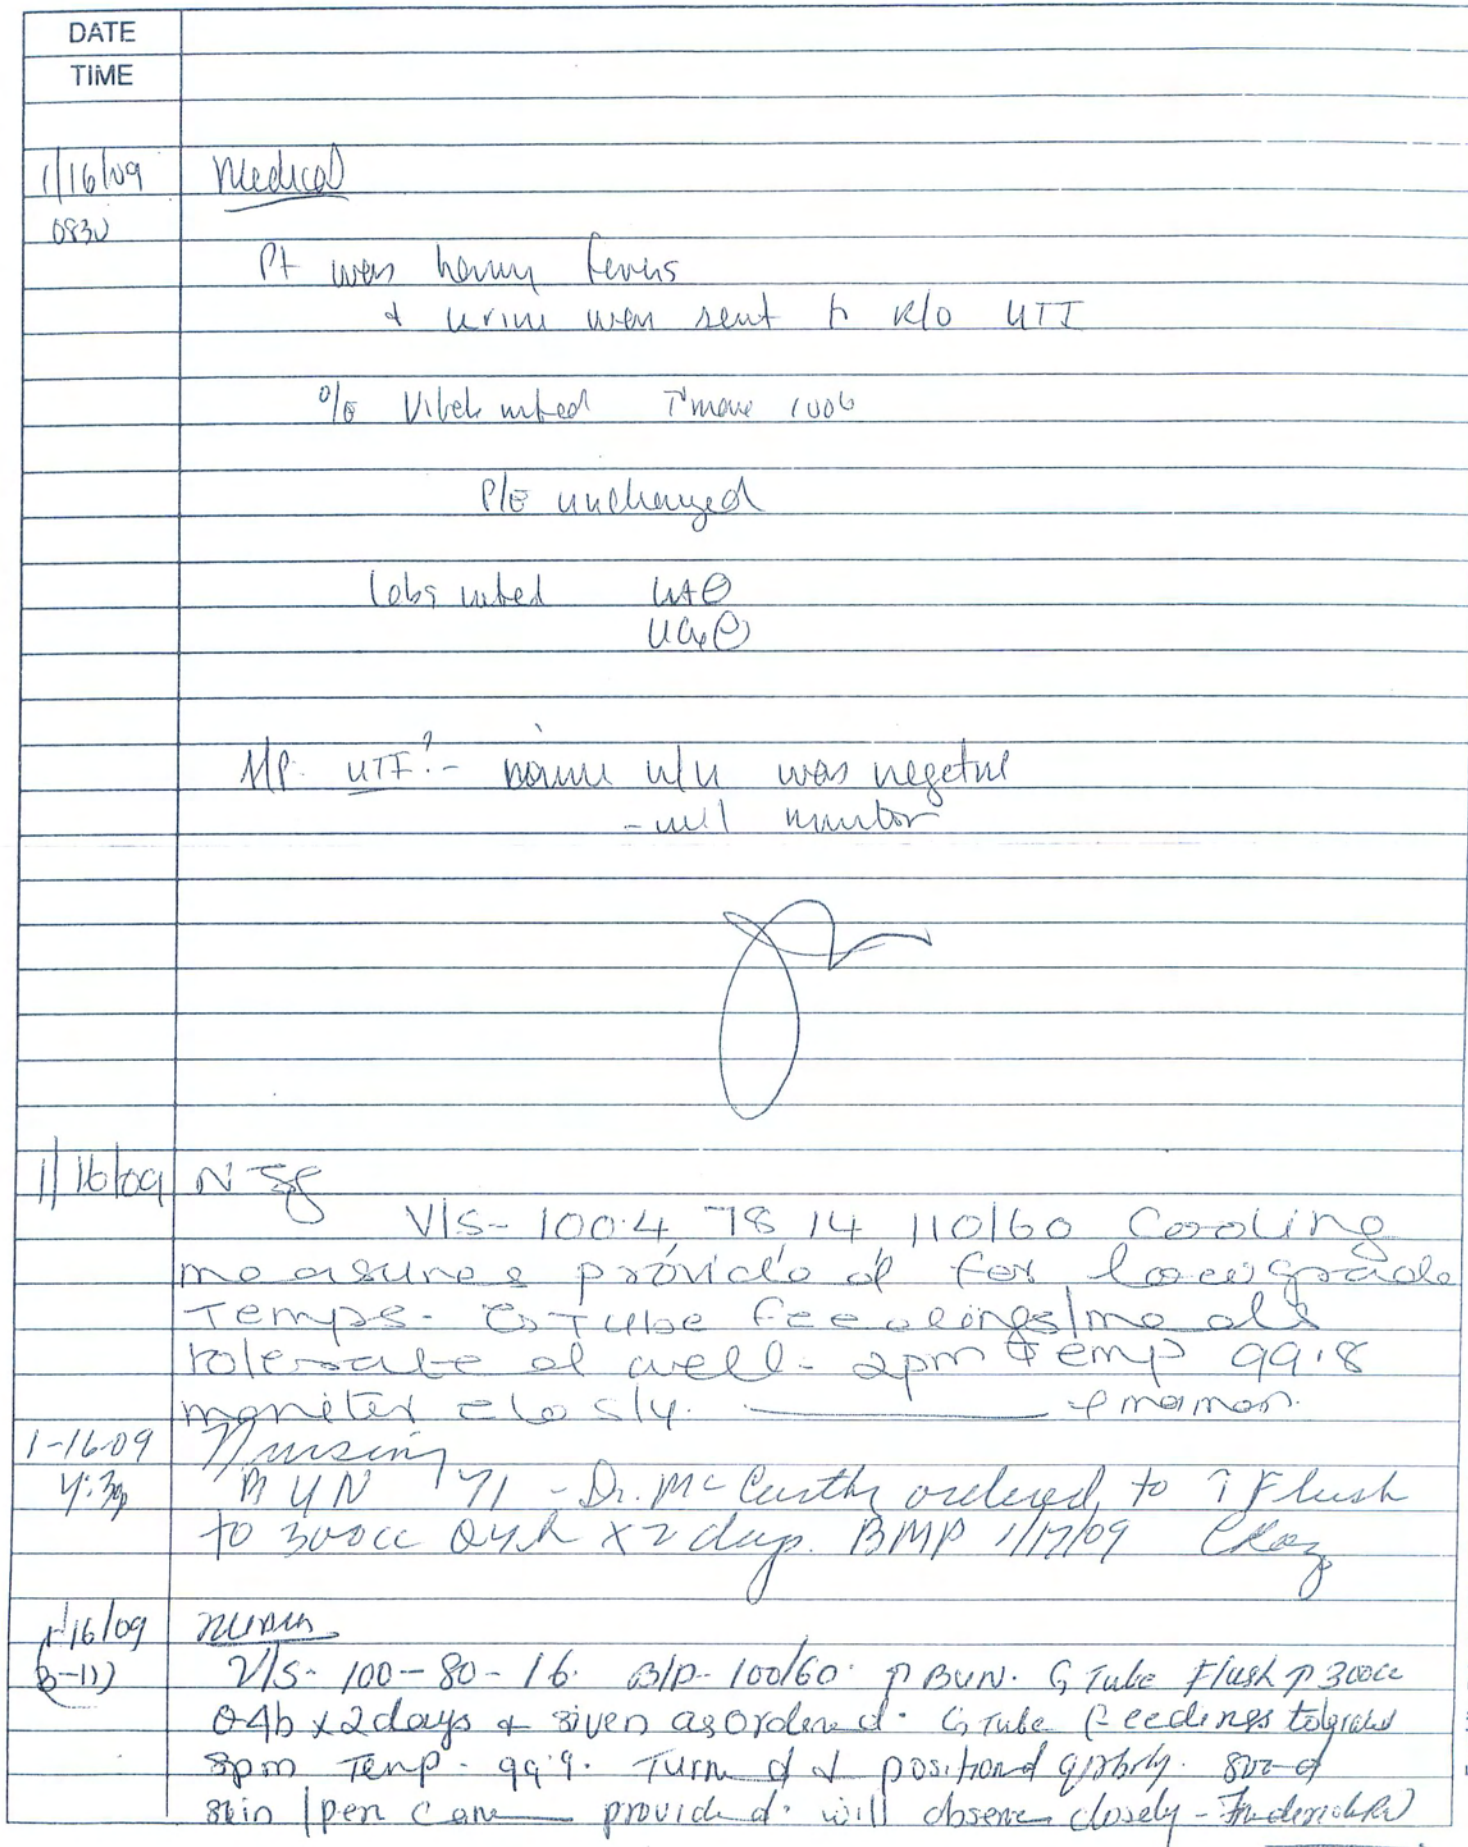 DATE
TIME
1/16/09 Medical
0830
Pt was having fevers
& urine was sent to R/O UTI
O/E Vitals noted Tmax 1006
P/E unchanged
Labs noted UA⊖
UCx⊖
A/P: UTI?- urine w/u was negative
- will monitor
1/16/09 Nsg
V/S- 100.4, 78, 14, 110/60 Cooling
measures provided for low grade
Temps. G-Tube feedings/meals
tolerated well. 2pm temp 99.8
moniter closly.
1-16-09 Nursing
4:30p BUN 71 - Dr. McCarthy ordered to ↑ Flush
to 300cc Q4h x 2 days. BMP 1/17/09
1/16/09
(3-11) V/S- 100-80-16. B/P- 100/60. ↑ BUN. G Tube Flush ↑ 300cc
Q4h x 2 days & given as ordered. G Tube feedings tolerated
8pm Temp- 99.9. Turned & positiond
skin / peri care provided. will observe closely - Frederick RN